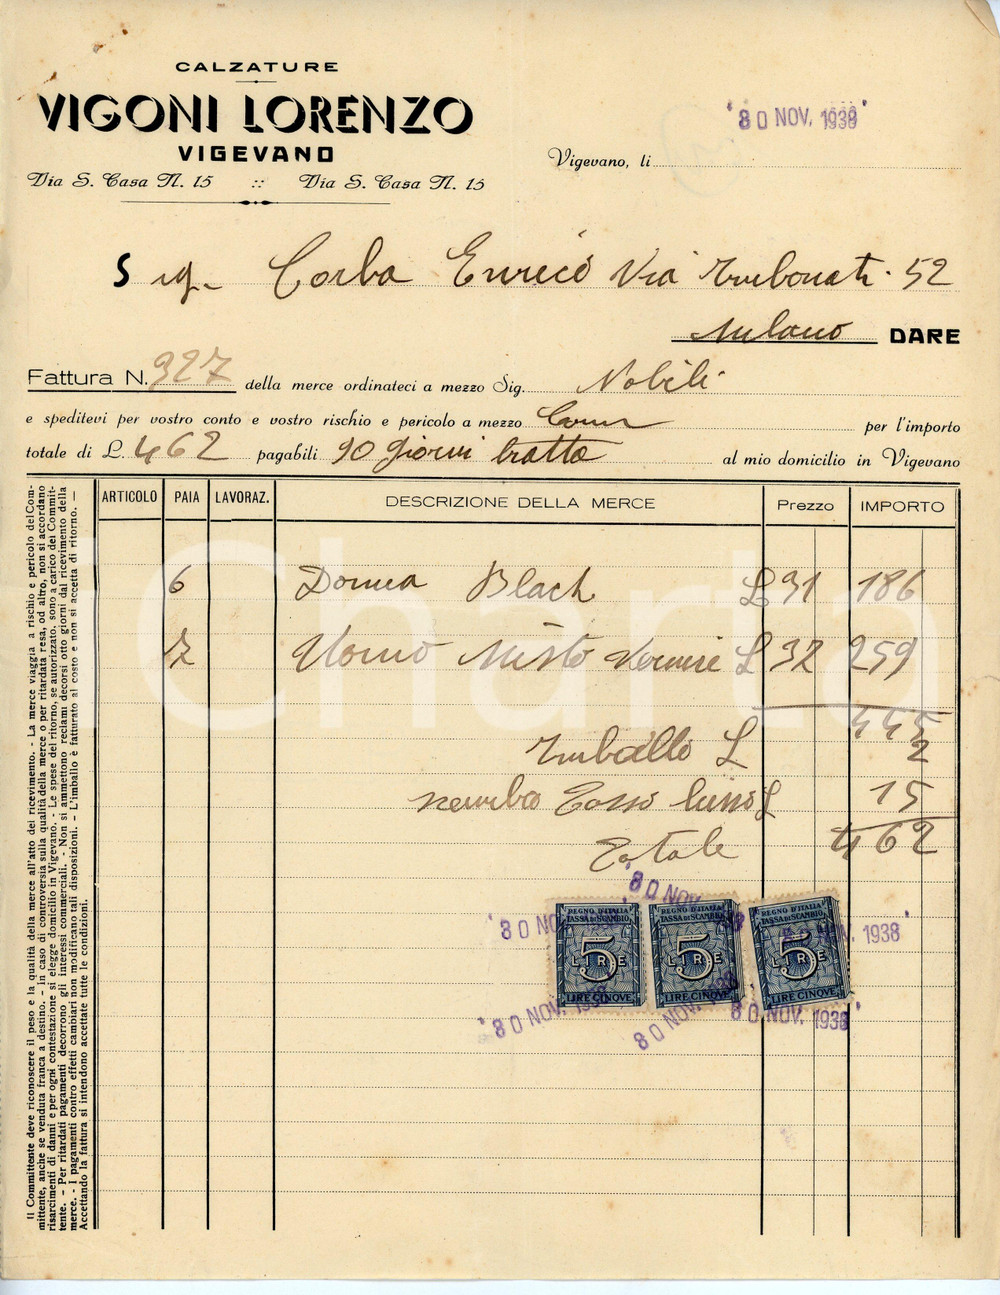 CALZATURE
VIGONI LORENZO
VIGEVANO
Via S. Casa N. 15 :: Via S. Casa N. 15
30 NOV. 1938
Vigevano, li
Sig. Corba Enrico Via Turbonati 52
Milano DARE
Fattura N. 327 della merce ordinateci a mezzo Sig. Nobili
e speditevi per vostro conto e vostro rischio e pericolo a mezzo Corr per l'importo
totale di L. 462 pagabili 90 giorni tratta al mio domicilio in Vigevano
ARTICOLO PAIA LAVORAZ. DESCRIZIONE DELLA MERCE Prezzo IMPORTO
6 Donna Black L 31 186
7 Uomo Misto Vernice L 32 259
445
Imballo L 2
Rimbo Tassa lusso L 15
Totale 462
30 NOV. 1938
REGNO D'ITALIA TASSA DI SCAMBIO 5 LIRE LIRE CINQVE
REGNO D'ITALIA TASSA DI SCAMBIO 5 LIRE LIRE CINQVE
REGNO D'ITALIA TASSA DI SCAMBIO 5 LIRE LIRE CINQVE
30 NOV. 1938
30 NOV. 1938
30 NOV. 1938
30 NOV. 1938
30 NOV. 1938
Il Committente deve riconoscere il peso e la qualità della merce all'atto del ricevimento. - La merce viaggia a rischio e pericolo del Com-
mittente, anche se venduta franca a destino. - In caso di controversia sulla qualità della merce o per ritardata resa, od altro, non si accordano
risarcimenti di danni e per ogni contestazione si elegge domicilio in Vigevano. - Le spese del ritorno, se autorizzato, sono a carico dei Commit-
tente. - Per ritardati pagamenti decorrono gli interessi commerciali. - Non si ammettono reclami decorsi otto giorni dal ricevimento della
merce. - I pagamenti contro effetti cambiari non modificano tali disposizioni. - L'imballo è fatturato al costo e non si accetta di ritorno. -
Accettando la fattura si intendono accettate tutte le condizioni.
iCharta